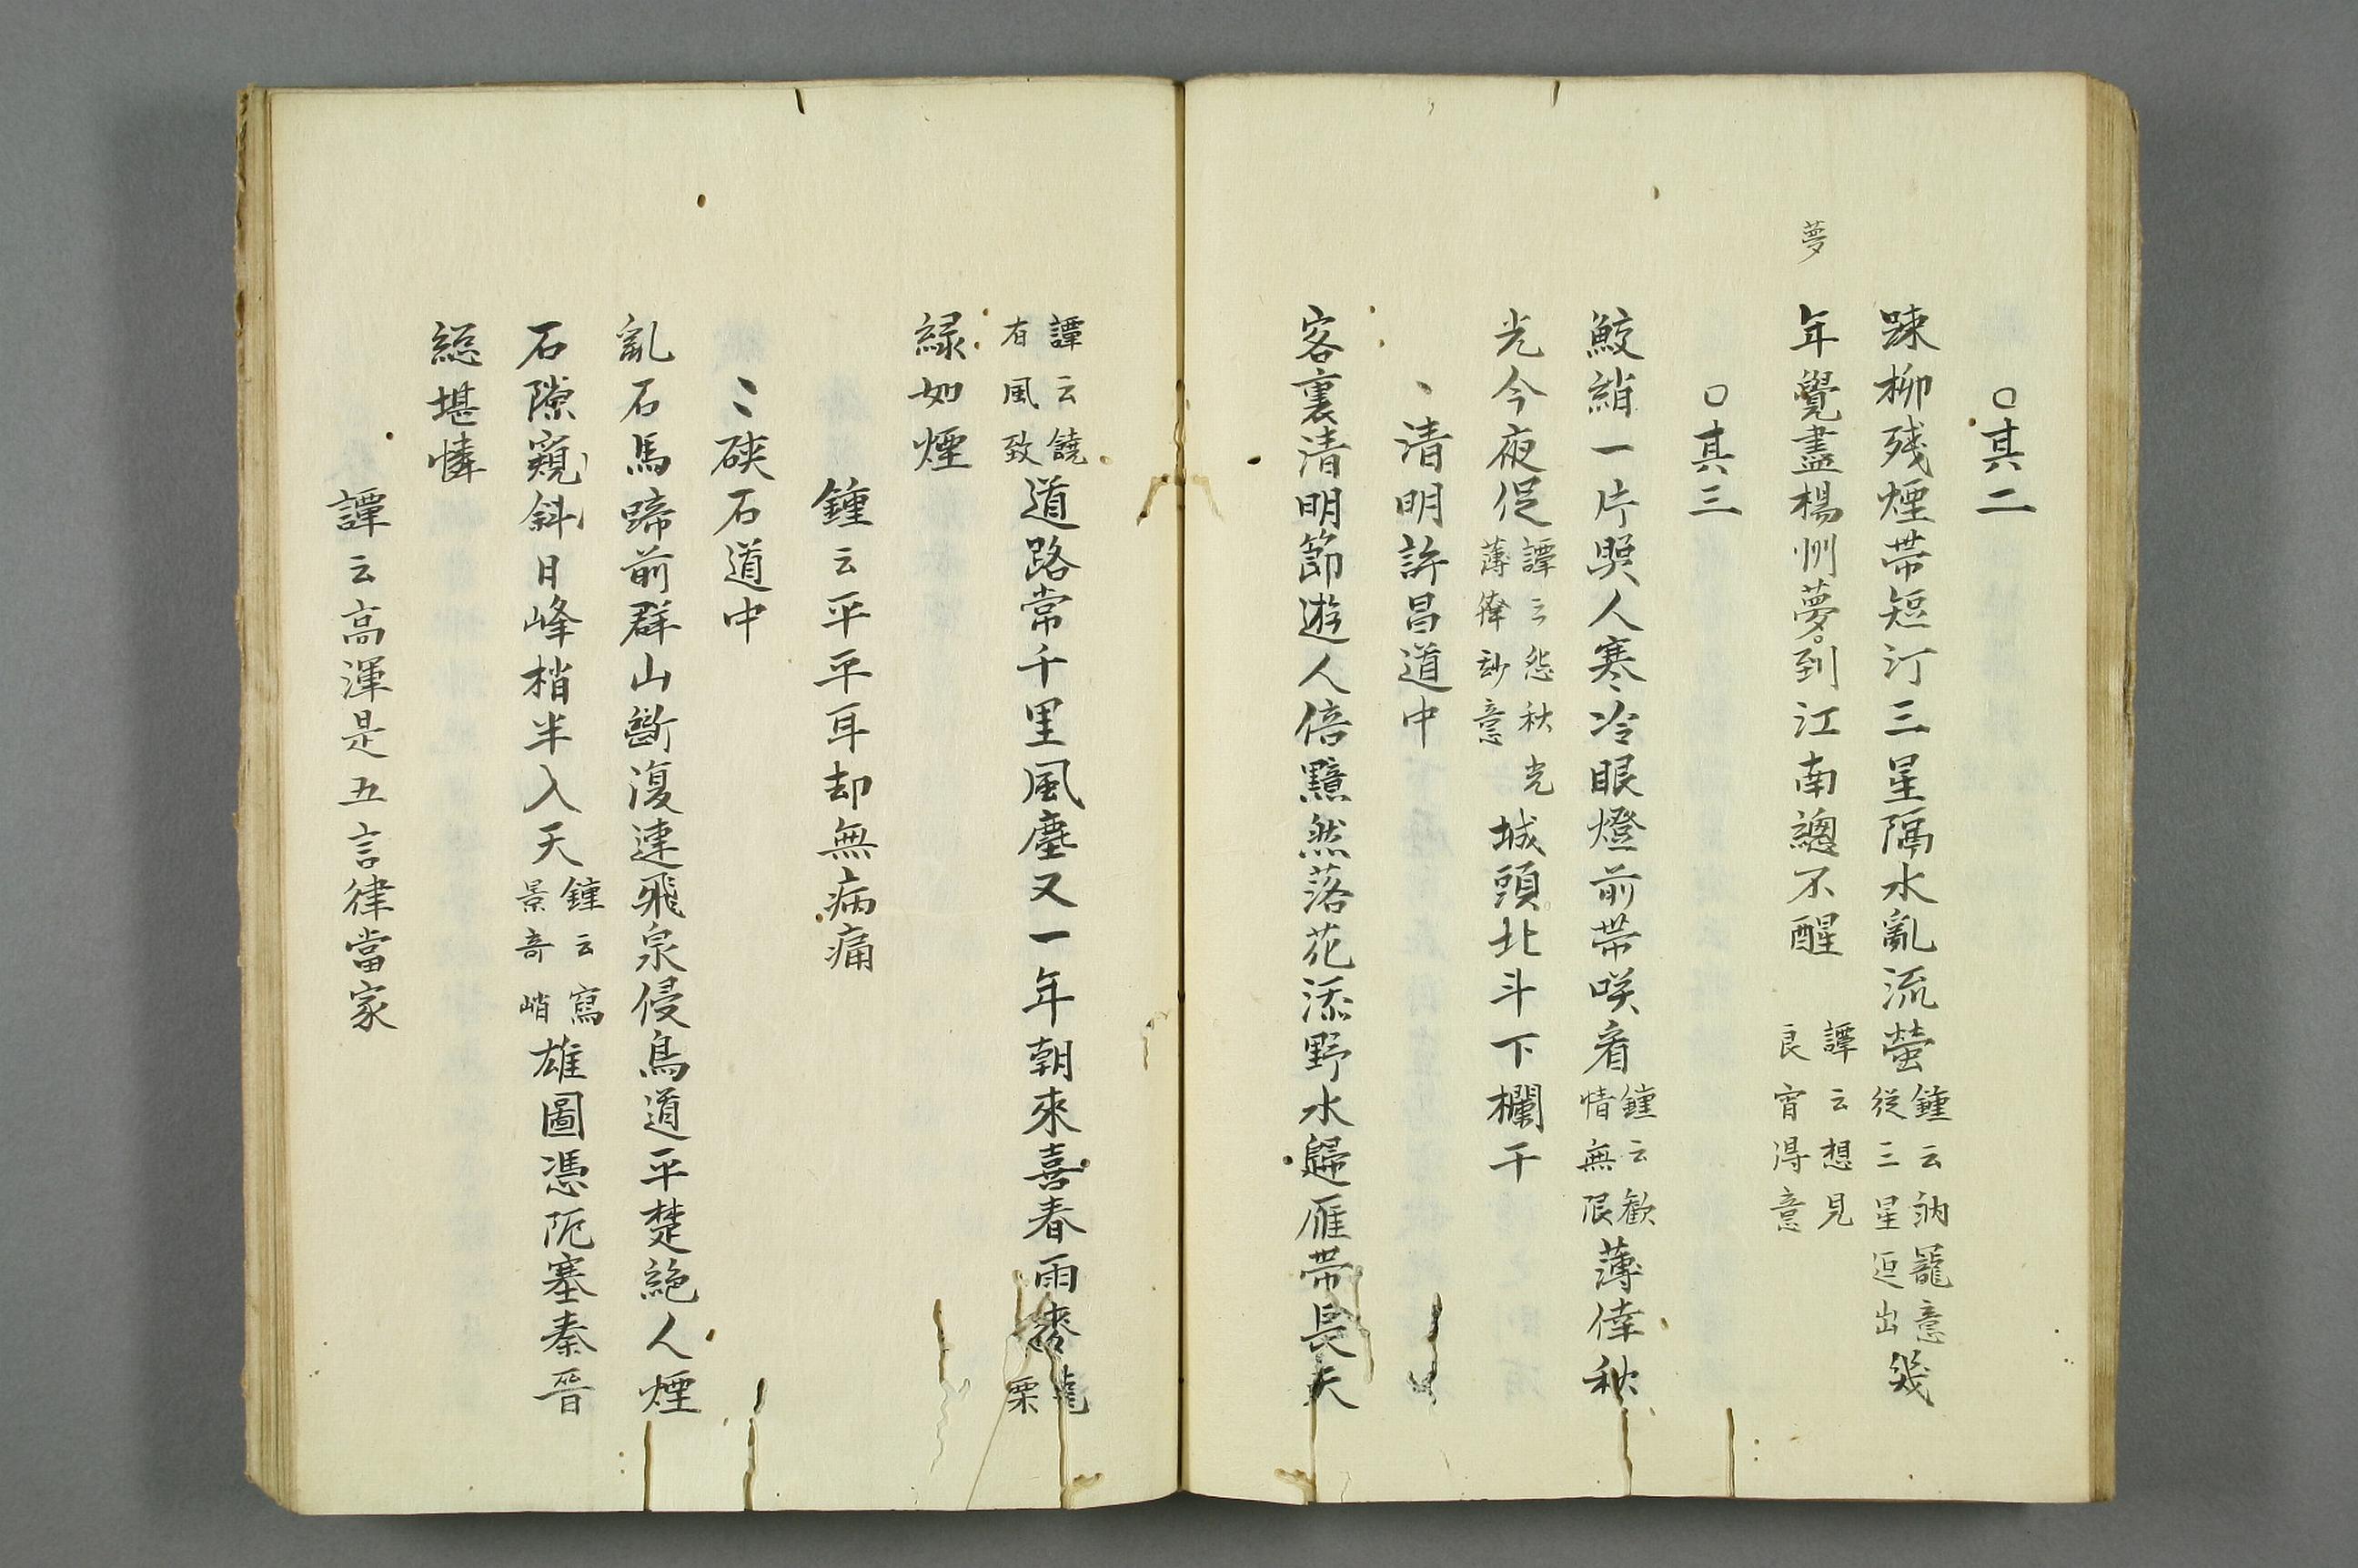 ○其二
踈柳残煙帯短汀三星隔水亂流螢鍾云納寵意從三星逗出幾
夢
年覺盡楊州夢到江南總不醒譚云想見良宵得意
○其三
鮫綃一片與人寒冷眼燈前帯咲看鍾云歡情無限薄倖秋
光今夜促譚云怨秋光薄倖玅意城頭北斗下欄干
清明許昌道中
客裏清明節遊人倍黯然落花添野水歸雁帯長天
譚云饒有風致道路常千里風塵又一年朝來喜春雨麥隴
緑如煙
鍾云平平耳却無病痛
硤石道中
亂石馬蹄前群山斷復連飛泉侵鳥道平楚絶人煙
石隙窺斜日峰梢半入天鍾云寫景奇峭雄圖憑阨塞秦晉
総堪憐
譚云高渾是五言律當家